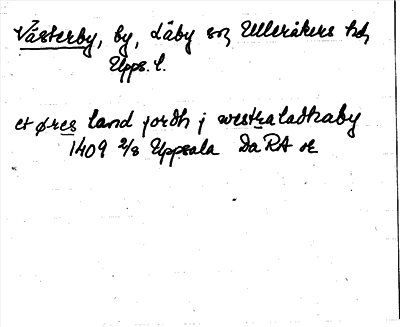 Västerby, by, Läby sn, Ulleråkers hd,
Upps. l.
et øres land jordh j westraladhaby
1409 2/8 Uppsala DaRA or